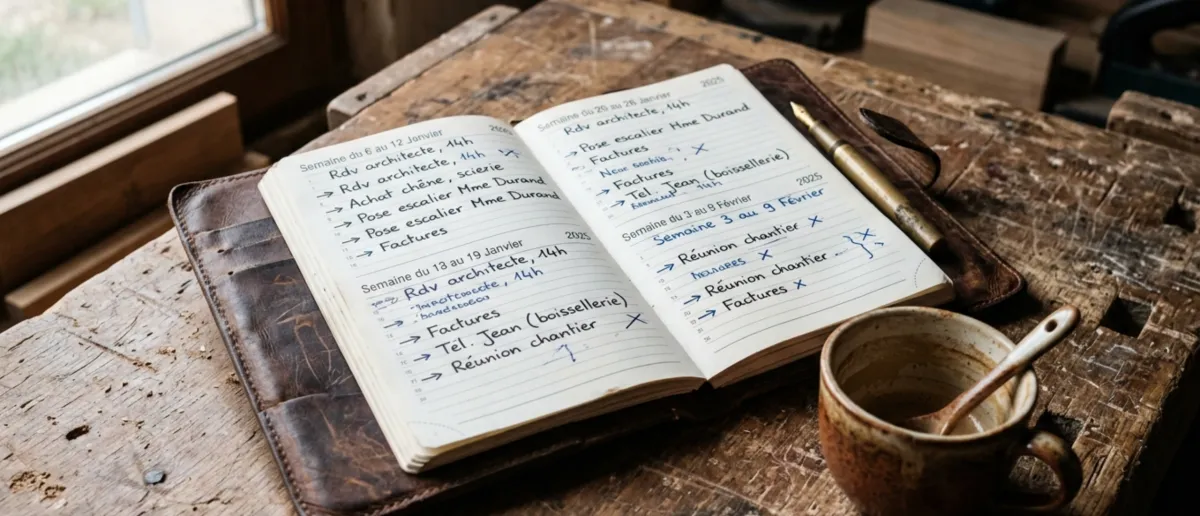 Semaine du 6 au 12 Janvier
Rdv architecte, 14h
→ Rdv architecte, 14h
→ Achat chêne, scierie
→ Pose escalier Mme Durand
→ Pose escalier Mme Durand
→ Factures
Semaine du 13 au 19 Janvier 2025
Rdv architecte, 14h
→ Factures
→ Tél. Jean (boissellerie)
→ Réunion chantier
Semaine du 20 au 26 Janvier 2025
Rdv architecte, 14h
→ Pose escalier Mme Durand
→ Factures
→ Factures
→ Tél. Jean (boissellerie)
14h
Semaine du 3 au 9 Février 2025
Semaine 3 au 9 Février
→ Réunion chantier
→ Réunion chantier
→ Factures